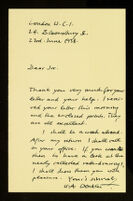 London W.C.1.
24, Bloomsbury St.
22nd June 1938.
Dear Sir,
Thank you very much for your
letter and your help. I received
your letter this morning
and the enclosed proofs. They
are all excellent.
I shall be a week ahead.
After my return I shall call
at your office. If you want
then to have a look at the
newly collected
I shall show them you with
pleasure. Yours sincerely,